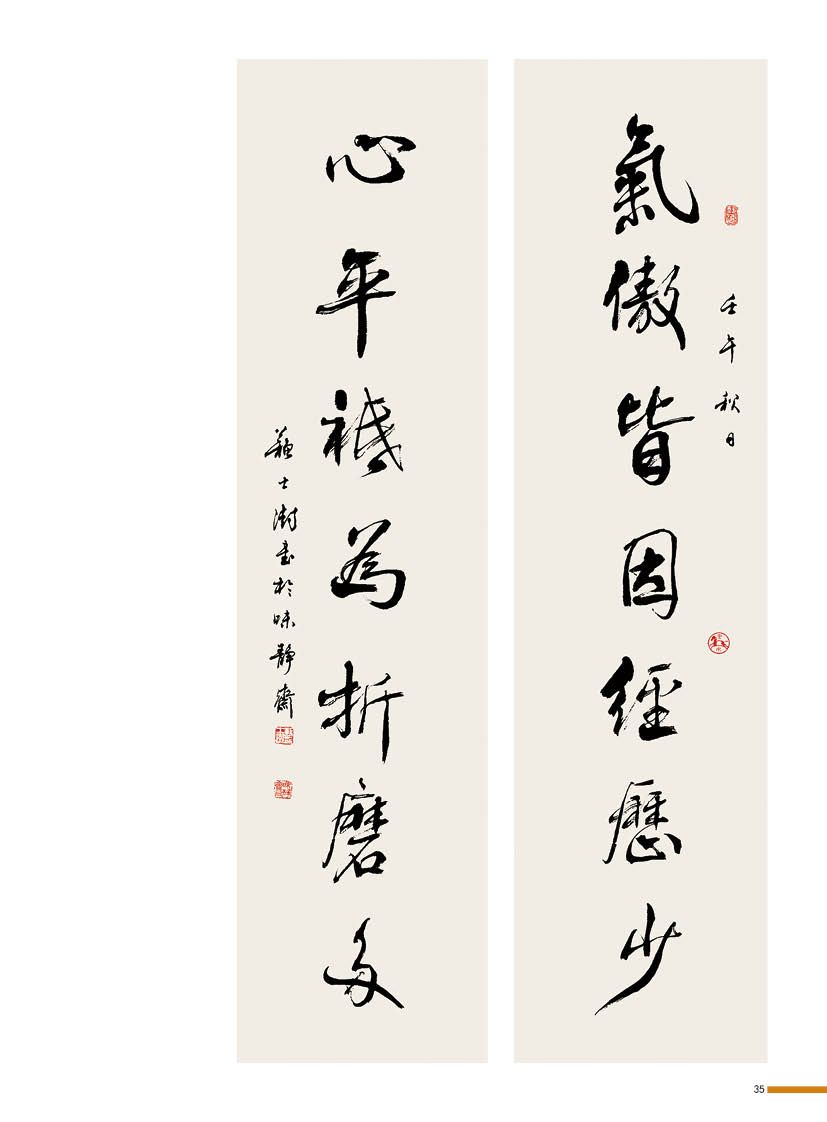 壬午秋日
氣傲皆因經歷少
心平祗為折磨多
蘇士澍書於味靜齋
35